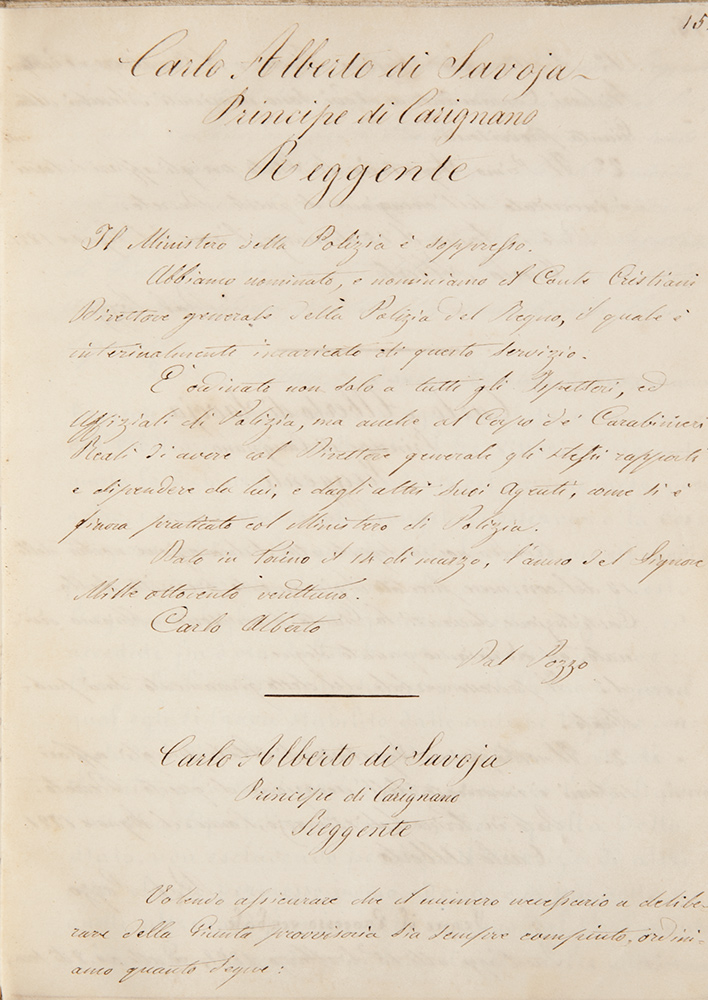 15
Carlo Alberto di Savoja
Principe di Carignano
Reggente
Il Ministero della Polizia è soppresso.
Abbiamo nominato, e nominiamo il Conte Cristiani
Direttore generale della Polizia del Regno, il quale è
interinalmente incaricato di questo servizio.
E' ordinato non solo a tutti gli Ispettori, ed
Uffiziali di Polizia, ma anche al Corpo de' Carabinieri
Reali di avere col Direttore generale gli stessi rapporti
e dipendere da lui, e dagli altri suoi agenti, come si è
finora praticato col Ministero di Polizia.
Dato in Torino il 14 di marzo, l'anno del Signore
Mille ottocento ventuno.
Carlo Alberto
Dal Pozzo
Carlo Alberto di Savoja
Principe di Carignano
Reggente
Volendo assicurare che il numero necessario a delibe-
rare della Giunta provvisoria sia sempre compiuto, ordini-
amo quanto segue: